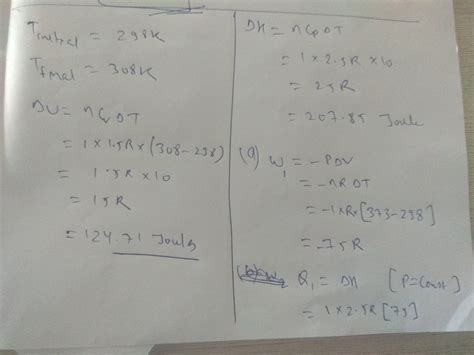 Tinitial = 298K
Tfinal = 308K
DU = nCvDT
= 1 x 1.5R x (308-298)
= 1.5R x 10
= 15R
= 124.71 Joules
DH = nCpDT
= 1 x 2.5R x 10
= 25R
= 207.85 Joule
(a) W1 = -PDV
= -nRDT
= -1xRx[373-298]
= -75R
Q1 = DH [P=Const]
= 1 x 2.5R [75]